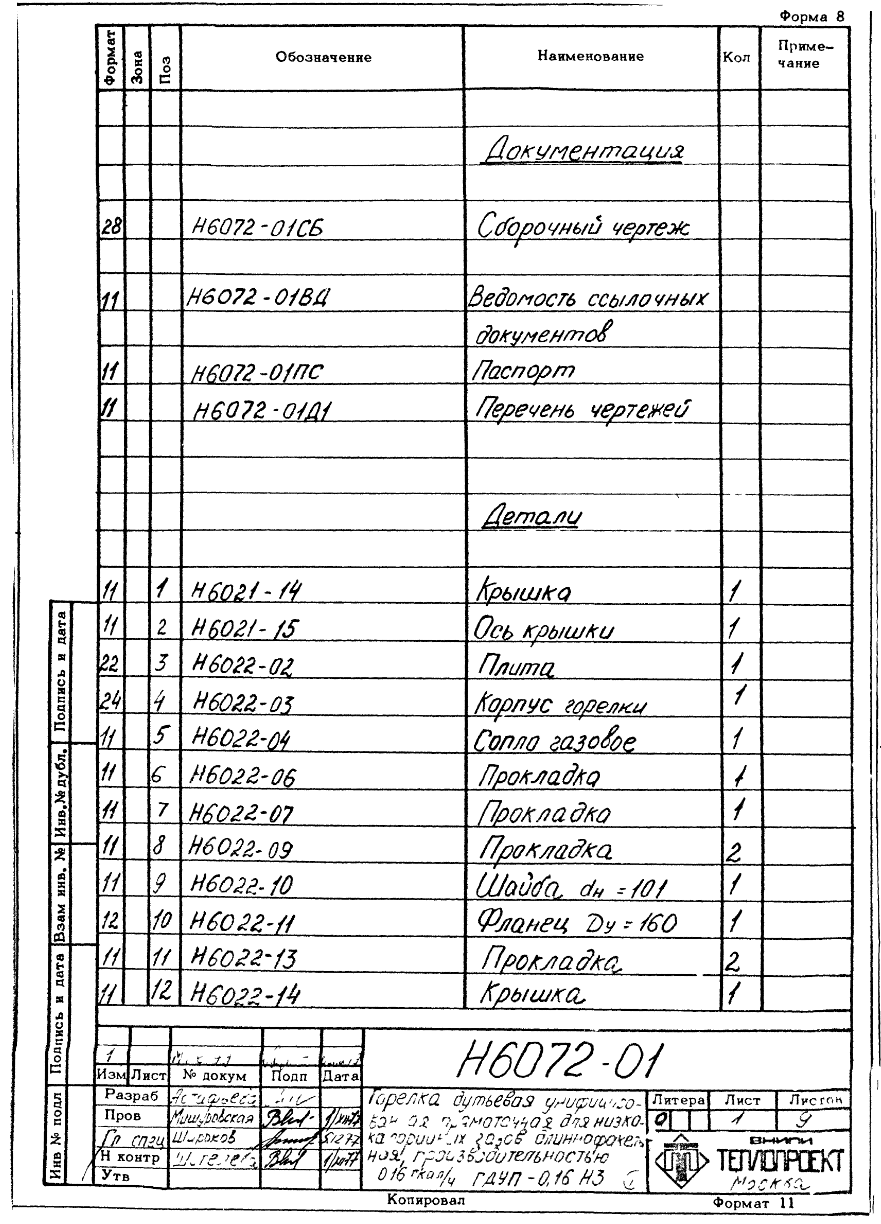 Форма 8
Формат Зона Поз Обозначение Наименование Кол Приме-
чание
Документация
28 Н6072-01СБ Сборочный чертеж
11 Н6072-01ВД Ведомость ссылочных
документов
11 Н6072-01ПС Паспорт
11 Н6072-01Д1 Перечень чертежей
Детали
11 1 Н6021-14 Крышка 1
11 2 Н6021-15 Ось крышки 1
22 3 Н6022-02 Плита 1
24 4 Н6022-03 Корпус горелки 1
11 5 Н6022-04 Сопло газовое 1
11 6 Н6022-06 Прокладка 1
11 7 Н6022-07 Прокладка 1
11 8 Н6022-09 Прокладка 2
11 9 Н6022-10 Шайба dн=101 1
12 10 Н6022-11 Фланец Dу=160 1
11 11 Н6022-13 Прокладка 2
11 12 Н6022-14 Крышка 1
Подпись и дата
Инв.№ дубл.
Взам инв. №
Подпись и дата
Инв № подл
1
Изм Лист № докум Подп Дата
Н6072-01
Разраб
Пров Мишуровская
Гл спец Широков
Н контр
Утв
Горелка дутьевая унифициро-
ванная прямоточная для низко-
калорийных газов длиннофакель-
ная, производительностью
0,16 гкал/ч ГДУП-0,16 Н3
Литера Лист Листов
0 1 9
ВНИПИ
ТЕПЛОПРОЕКТ
Москва
Копировал Формат 11